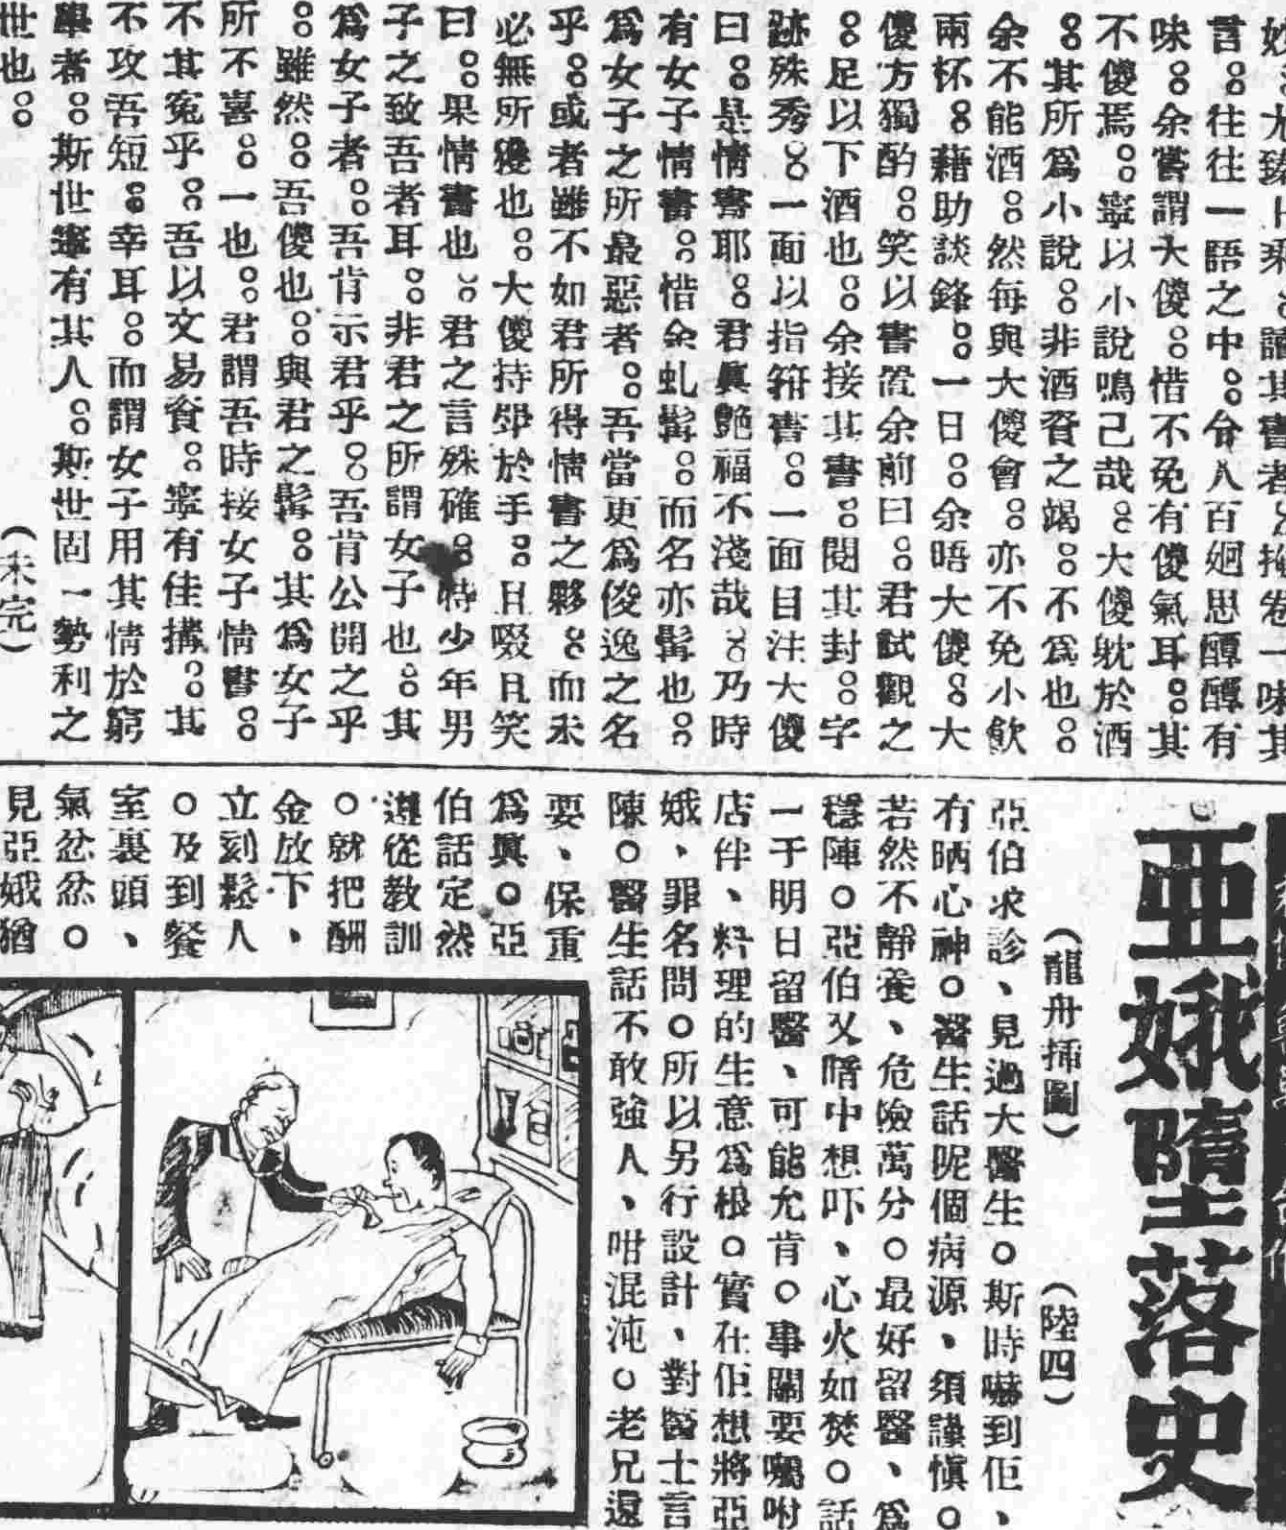 言。往往一語之中。含八百廻思。醰醰有
味。余嘗謂大傻。惜不免有傻氣耳。其
不傻焉。寧以小說鳴己哉。大傻躭於酒
。其所爲小說。非酒資之竭。不爲也。
余不能酒。然每與大傻會。亦不免小飲
兩杯。藉助談鋒。一日。余晤大傻。大
傻方獨酌。笑以書置余前曰。君試觀之
。足以下酒也。余接其書。閱其封。字
跡殊秀。一面以指箝書。一面目注大傻
曰。是情書耶。君眞艶福不淺哉。乃時
有女子情書。惜余虬髯。而名亦髯也。
爲女子之所最惡者。吾當更爲俊逸之名
乎。或者雖不如君所得情書之夥。而未
必無所獲也。大傻持斝於手。且啜且笑
曰。果情書也。君之言殊確。時少年男
子之致吾者耳。非君之所謂女子也。其
爲女子者。吾肯示君乎。吾肯公開之乎
。雖然。吾傻也。與君之髯。其爲女子
所不喜。一也。君謂吾時接女子情書。
不其寃乎。吾以文易資。寧有佳搆。其
不攻吾短。幸耳。而謂女子用其情於窮
畢者。斯世寧有其人。斯世固一勢利之
世也。
（未完）
亞娥墮落史
（龍舟揷圖）
（陸四）
亞伯求診、見過大醫生。斯時嚇到佢、
有晒心神。醫生話呢個病源、須謹愼。
若然不靜養、危險萬分。最好留醫、爲
穩陣。亞伯又暗中想吓、心火如焚。話
一于明日留醫、可能允肯。事關要囑咐
店伴、料理的生意爲根。實在佢想將亞
娥、罪名問。所以另行設計、對醫士言
陳。醫生話不敢強人、咁混沌。老兄還
要、保重
爲眞。亞
伯話定然
遵從教訓
。就把酬
金放下、
立刻鬆人
。及到餐
室裏頭、
氣忿忿。
見亞娥猶